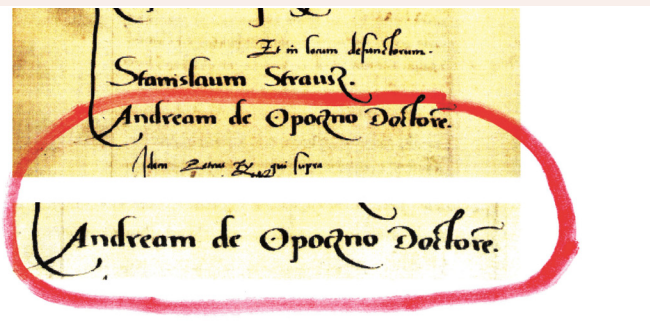 Et in locum defunctorum.
Stanislaum Strausz.
Andream de Opoczno Doctorē.
Idem qui supra
Andream de Opoczno Doctorē.